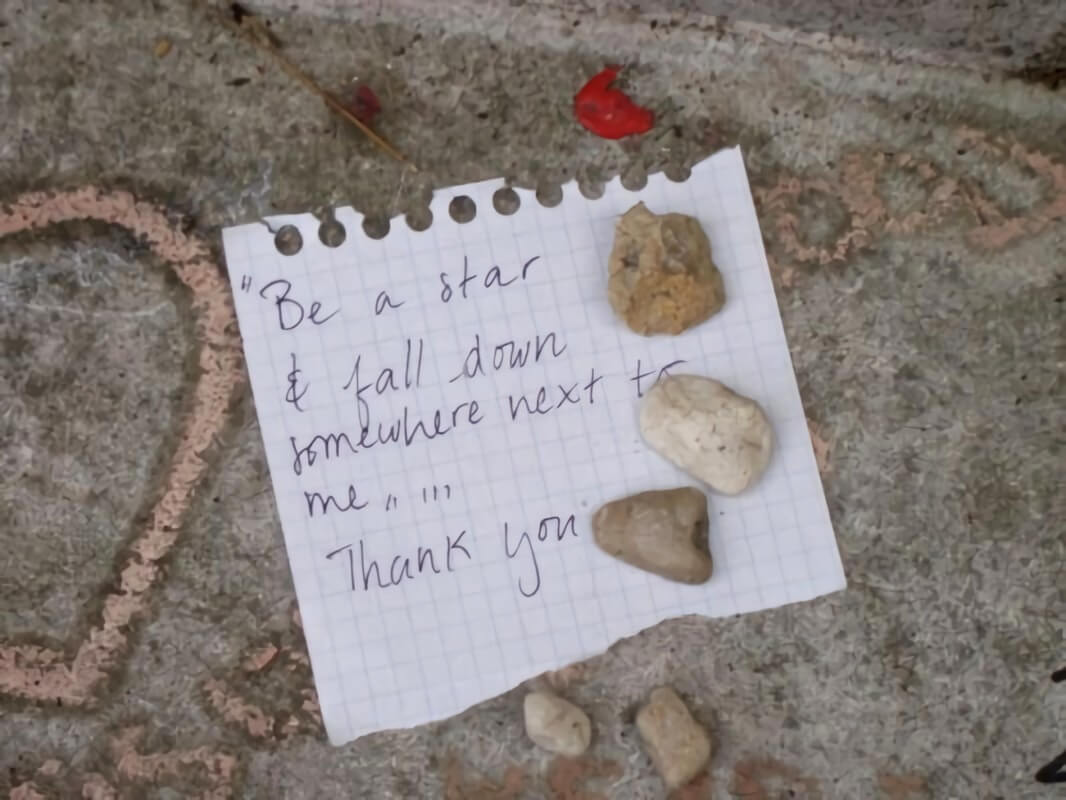 "Be a star
& fall down
somewhere next to
me ,, '''
Thank you